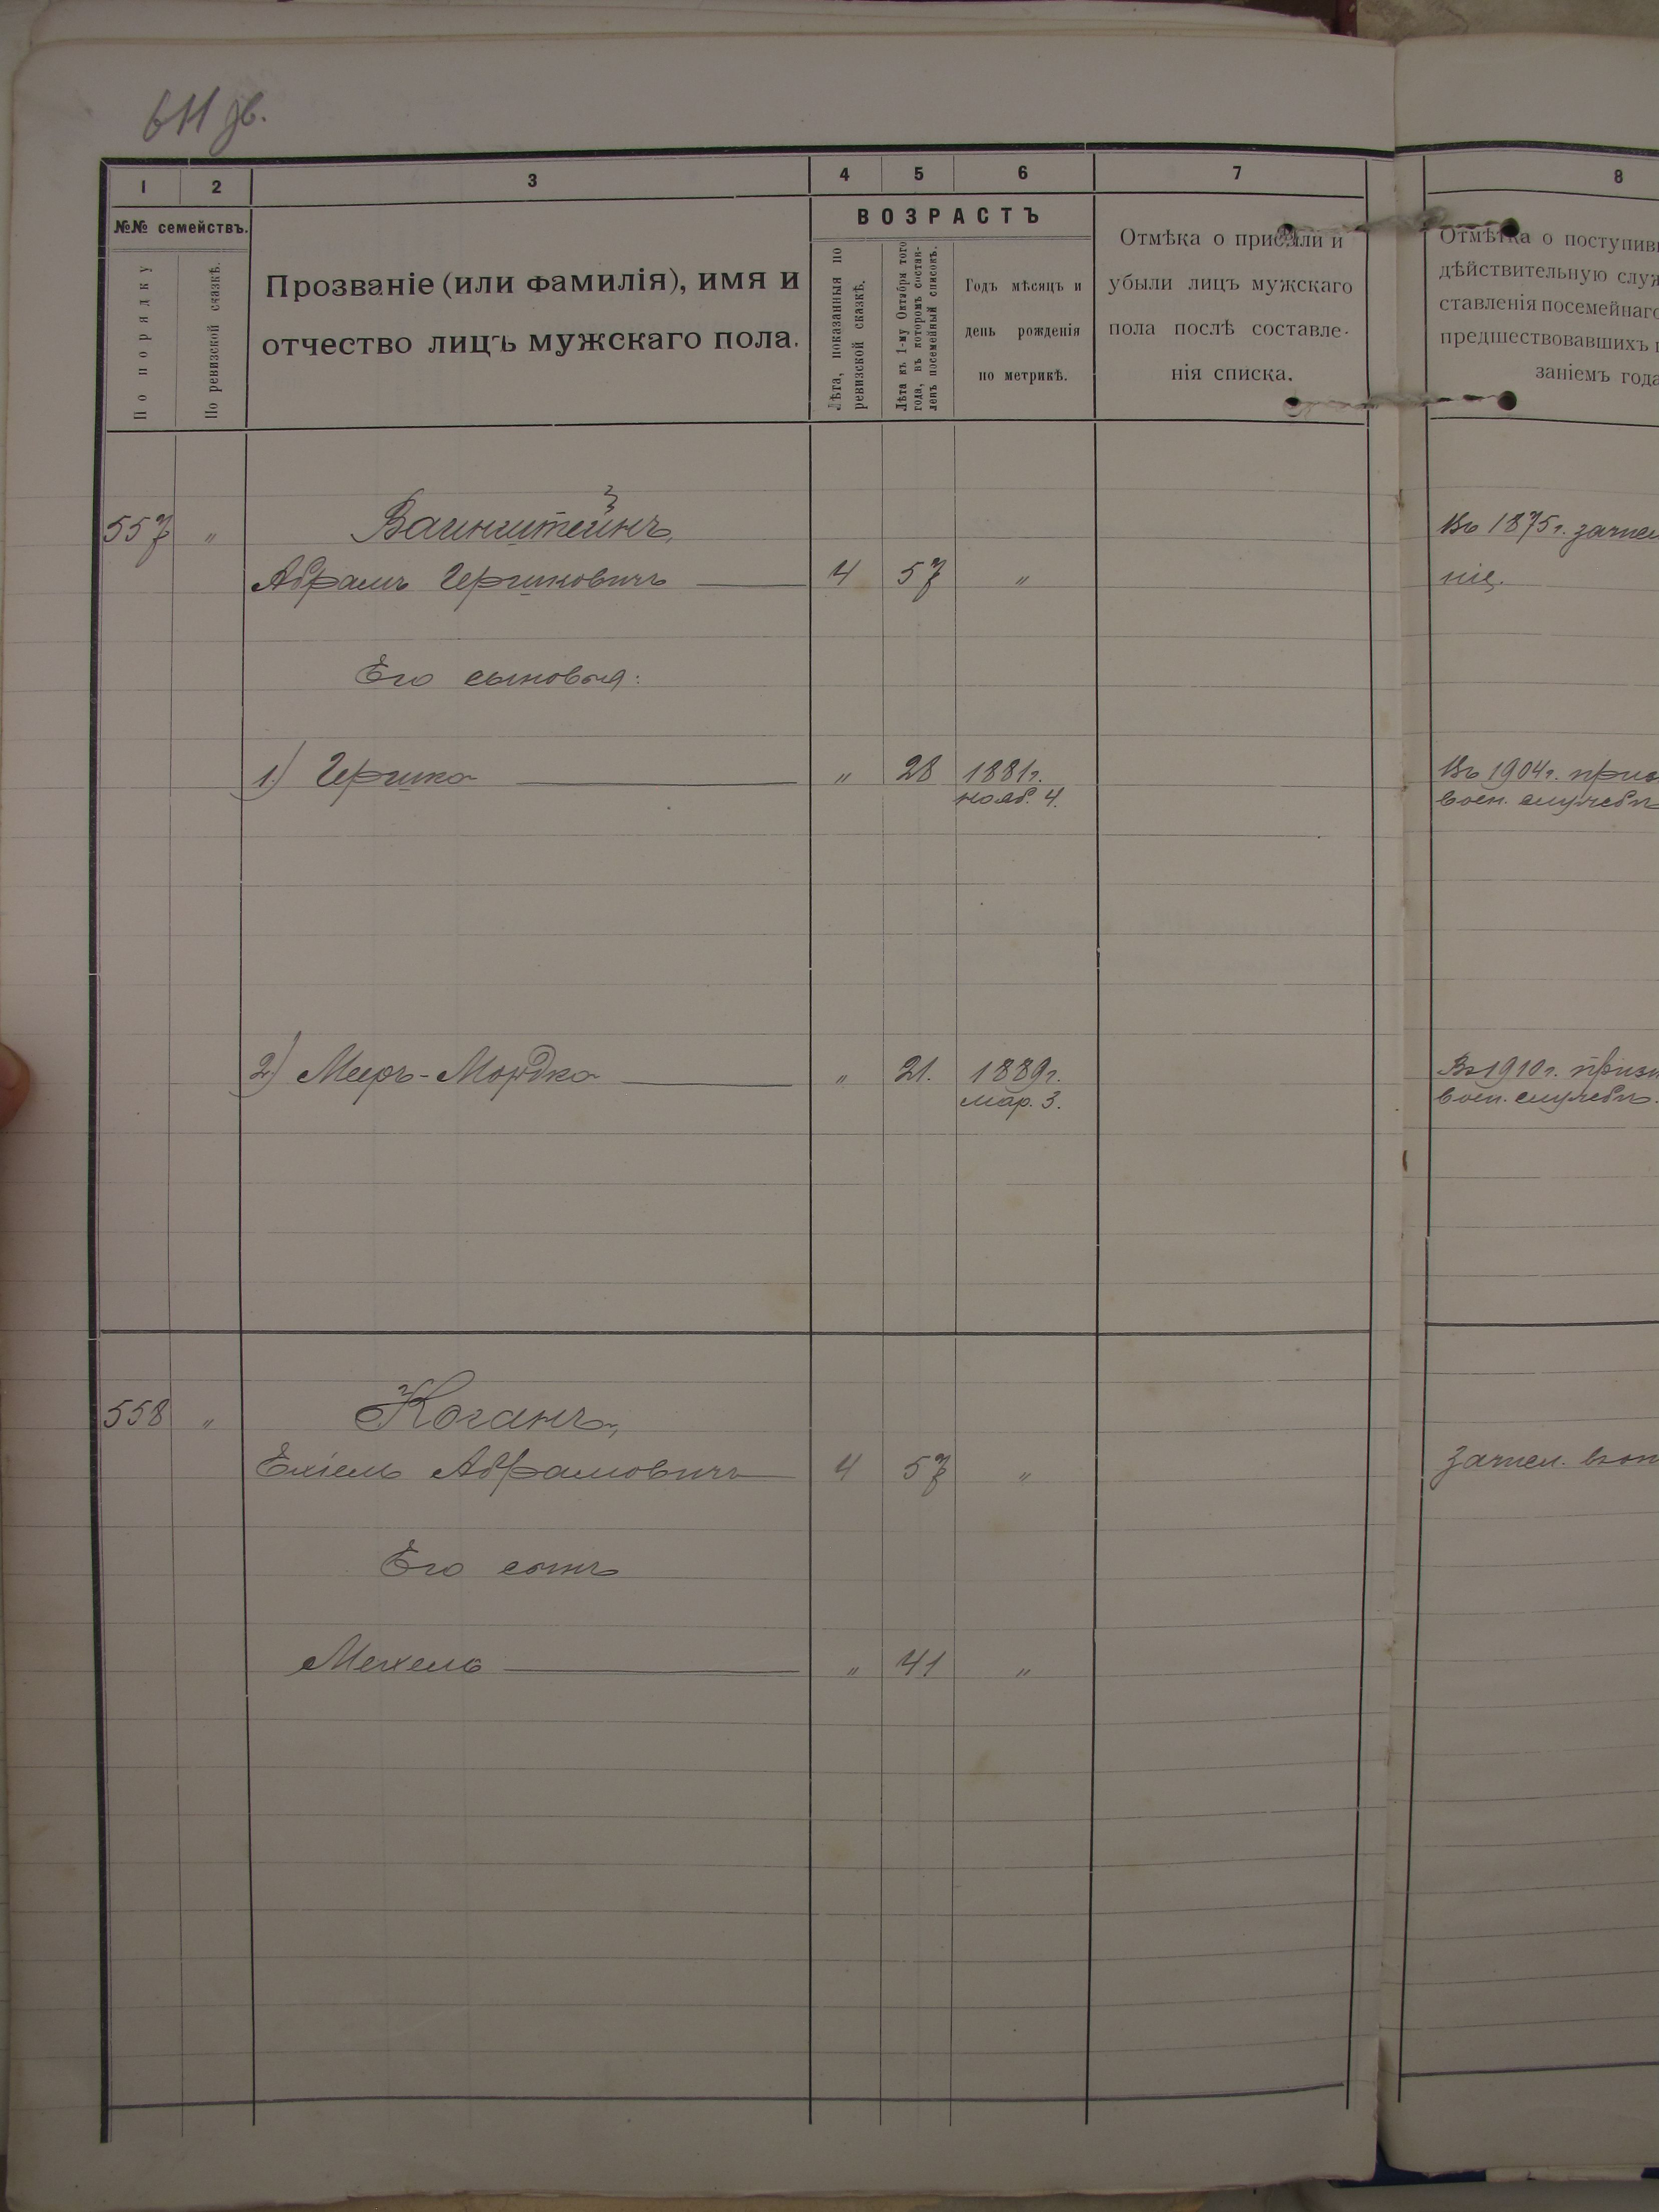 611 зв.
1 2 3 4 5 6 7 8
№№ семействъ.
По порядку
По ревизской сказкѣ.
Прозваніе (или фамилія), имя и
отчество лицъ мужскаго пола.
ВОЗРАСТЪ
Лѣта, показанныя по
ревизской сказкѣ.
Лѣта къ 1-му Октября того
года, въ которомъ состав-
ленъ посемейный списокъ.
Годъ мѣсяцъ и
день рожденія
по метрикѣ.
Отмѣка о прибыли и
убыли лицъ мужскаго
пола послѣ составле-
нія списка.
Отмѣтка о поступивш
дѣйствительную служ
ставленія посемейнаго
предшествовавшихъ
заніемъ года
557 " Ваинштейнъ, Въ 1875г. зачисл
Абрамъ Гершковичъ 4 57 " ніе.
Его сыновья:
1) Гершко " 28 1881г. Въ 1904г. приз
нояб. 4. воен. службѣ
2) Мееръ-Мордко " 21. 1889г. Въ 1910г. призн
мар. 3. воен. службѣ.
558 " Коганъ,
Ехіель Абрамовичъ 4 57 " Зачисл.
Его сынъ
Мехель " 41 "